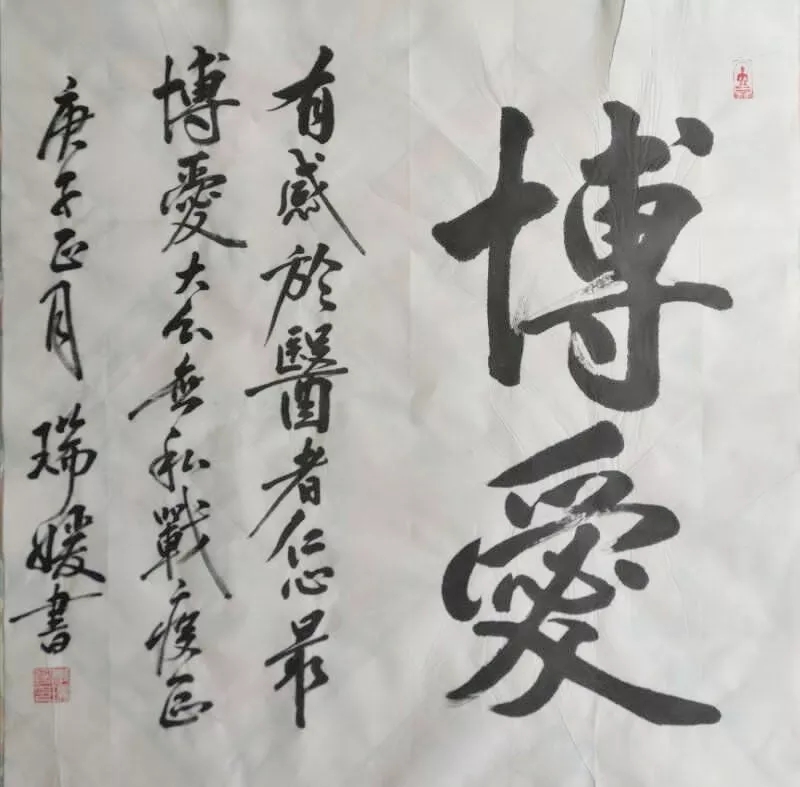 博愛
有感於醫者仁心最
博愛大公無私戰疫
庚子正月 瑞媛書